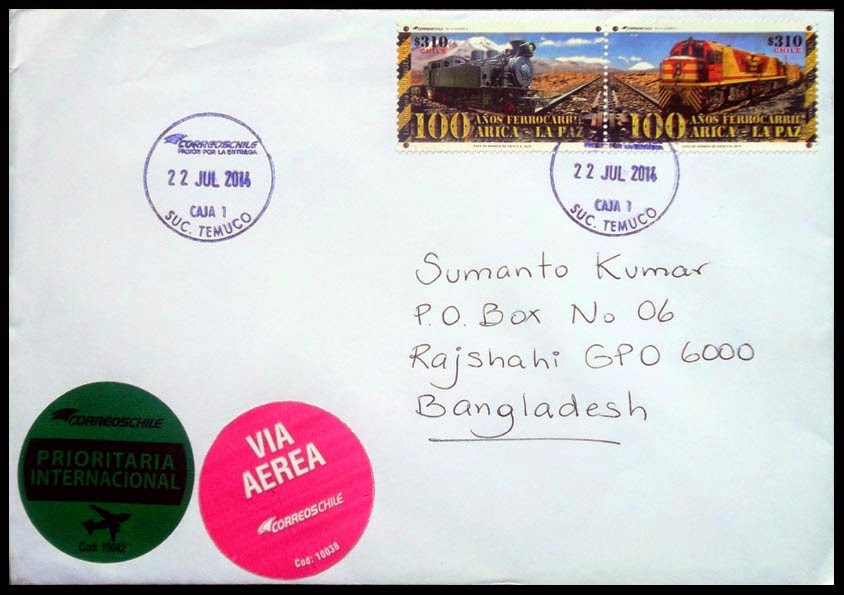 CORREOSCHILE
$310
CHILE
100 AÑOS FERROCARRIL
ARICA - LA PAZ
$310
CHILE
100 AÑOS FERROCARRIL
ARICA - LA PAZ
CORREOSCHILE
PASIÓN POR LA ENTREGA
22 JUL 2014
CAJA 1
SUC. TEMUCO
22 JUL 2014
CAJA 1
SUC. TEMUCO
Sumanto Kumar
P.O. Box No 06
Rajshahi GPO 6000
Bangladesh
CORREOSCHILE
PRIORITARIA
INTERNACIONAL
Cod: 10042
VIA
AEREA
CORREOSCHILE
Cod: 10038